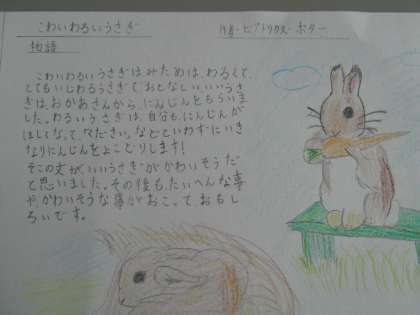 こわいわるいうさぎ
作者・ビアトリクス・ポター
物語
こわいわるいうさぎはみためは、わるくて、
とてもいじわるうさぎで、おとなしい、いいうさ
ぎは、おかあさんから、にんじんをもらいま
した。わるいうさぎは、自分も、にんじんが
ほしくなって、「ください。」などといわずにいき
なりにんじんをよこどりします!
そこの文が、いいうさぎがかわいそうだ
と思いました。その後も、たいへんな事
や、かわいそうな事がおこっておもし
ろいです。